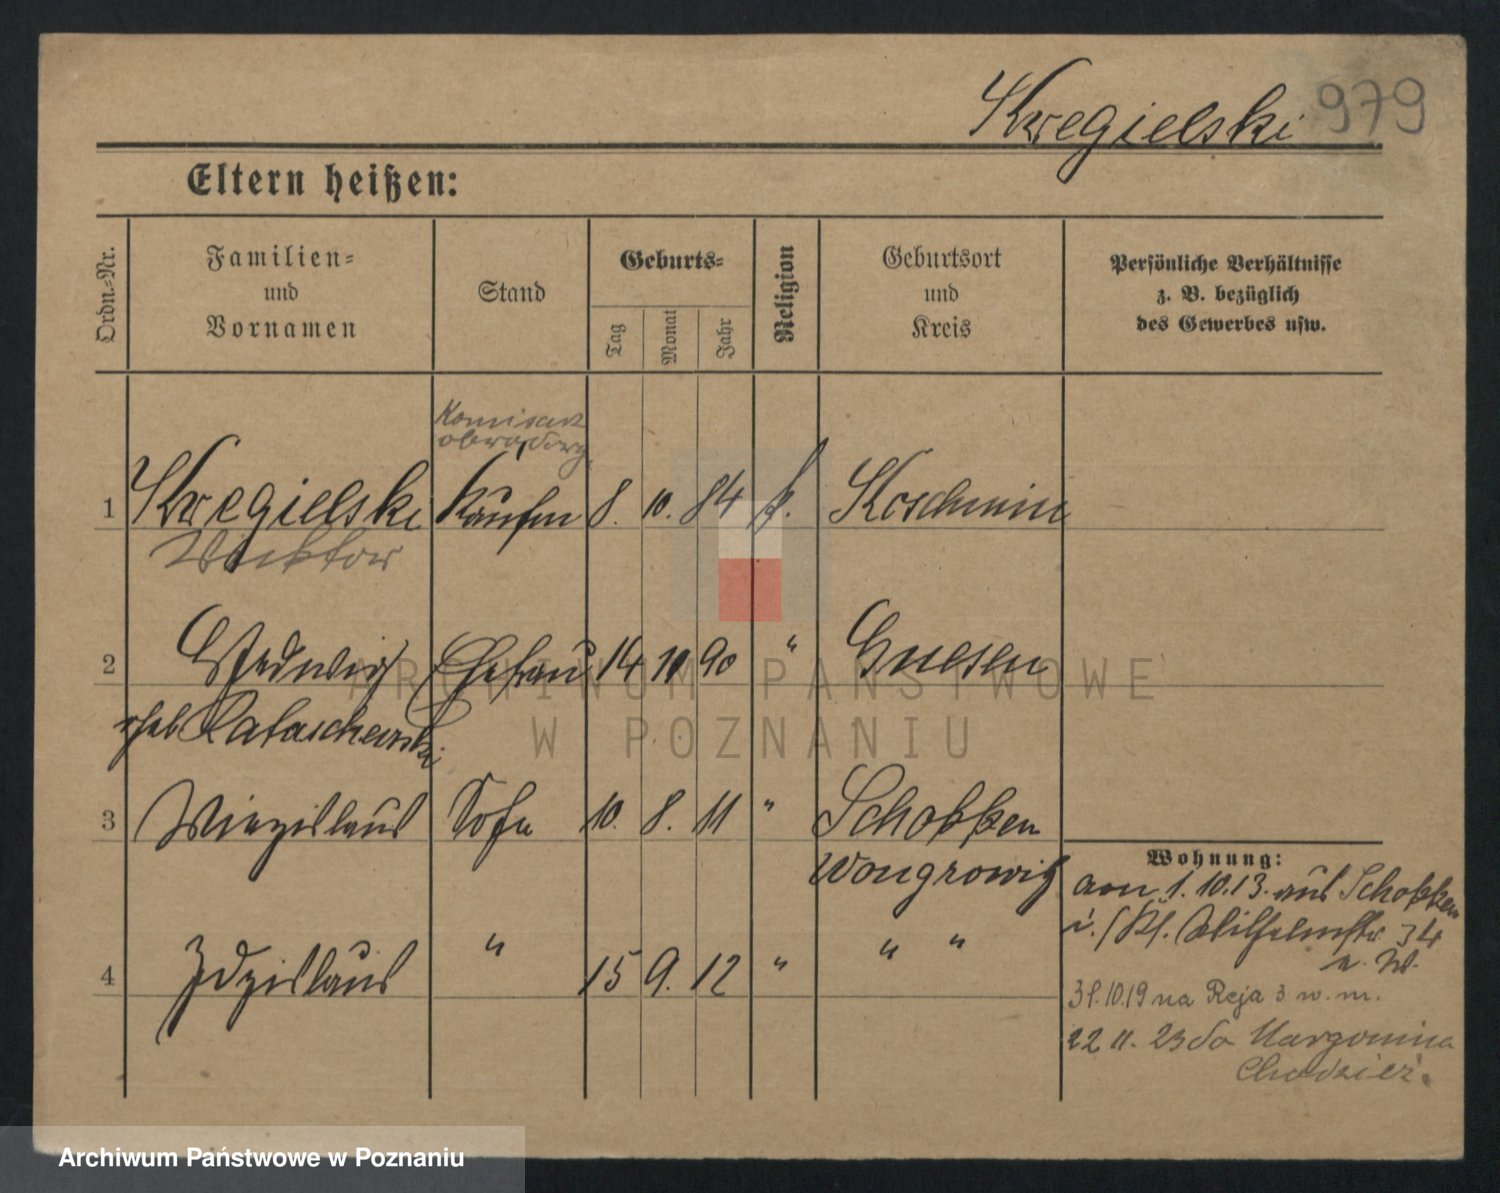 Skwegielski 979
Eltern heißen:
Ordn.-Nr.
Familien-
und
Vornamen
Stand
Geburts-
Tag
Monat
Jahr
Religion
Geburtsort
und
Kreis
Persönliche Verhältnisse
z. B. bezüglich
des Gewerbes usw.
Komisarz
1 Skwegielski Kaufm 8. 10. 84 k. Koschmin
Wiktor
2 Hedwig Ehefrau 14 10 90 " Gnesen
geb Rataschewski
3 Wiezislaus Sohn 10. 8. 11 " Schokken
Wongrowitz
Wohnung:
am 1.10.13. aus Schokken
Wilhelmstr. 34
4 Zdzislaus " 15 9. 12 " " "
31.10.19 na Reja 3 w. m.
22 11. 23 do Margonina
Chodzież.
ARCHIWUM PAŃSTWOWE
W POZNANIU
Archiwum Państwowe w Poznaniu